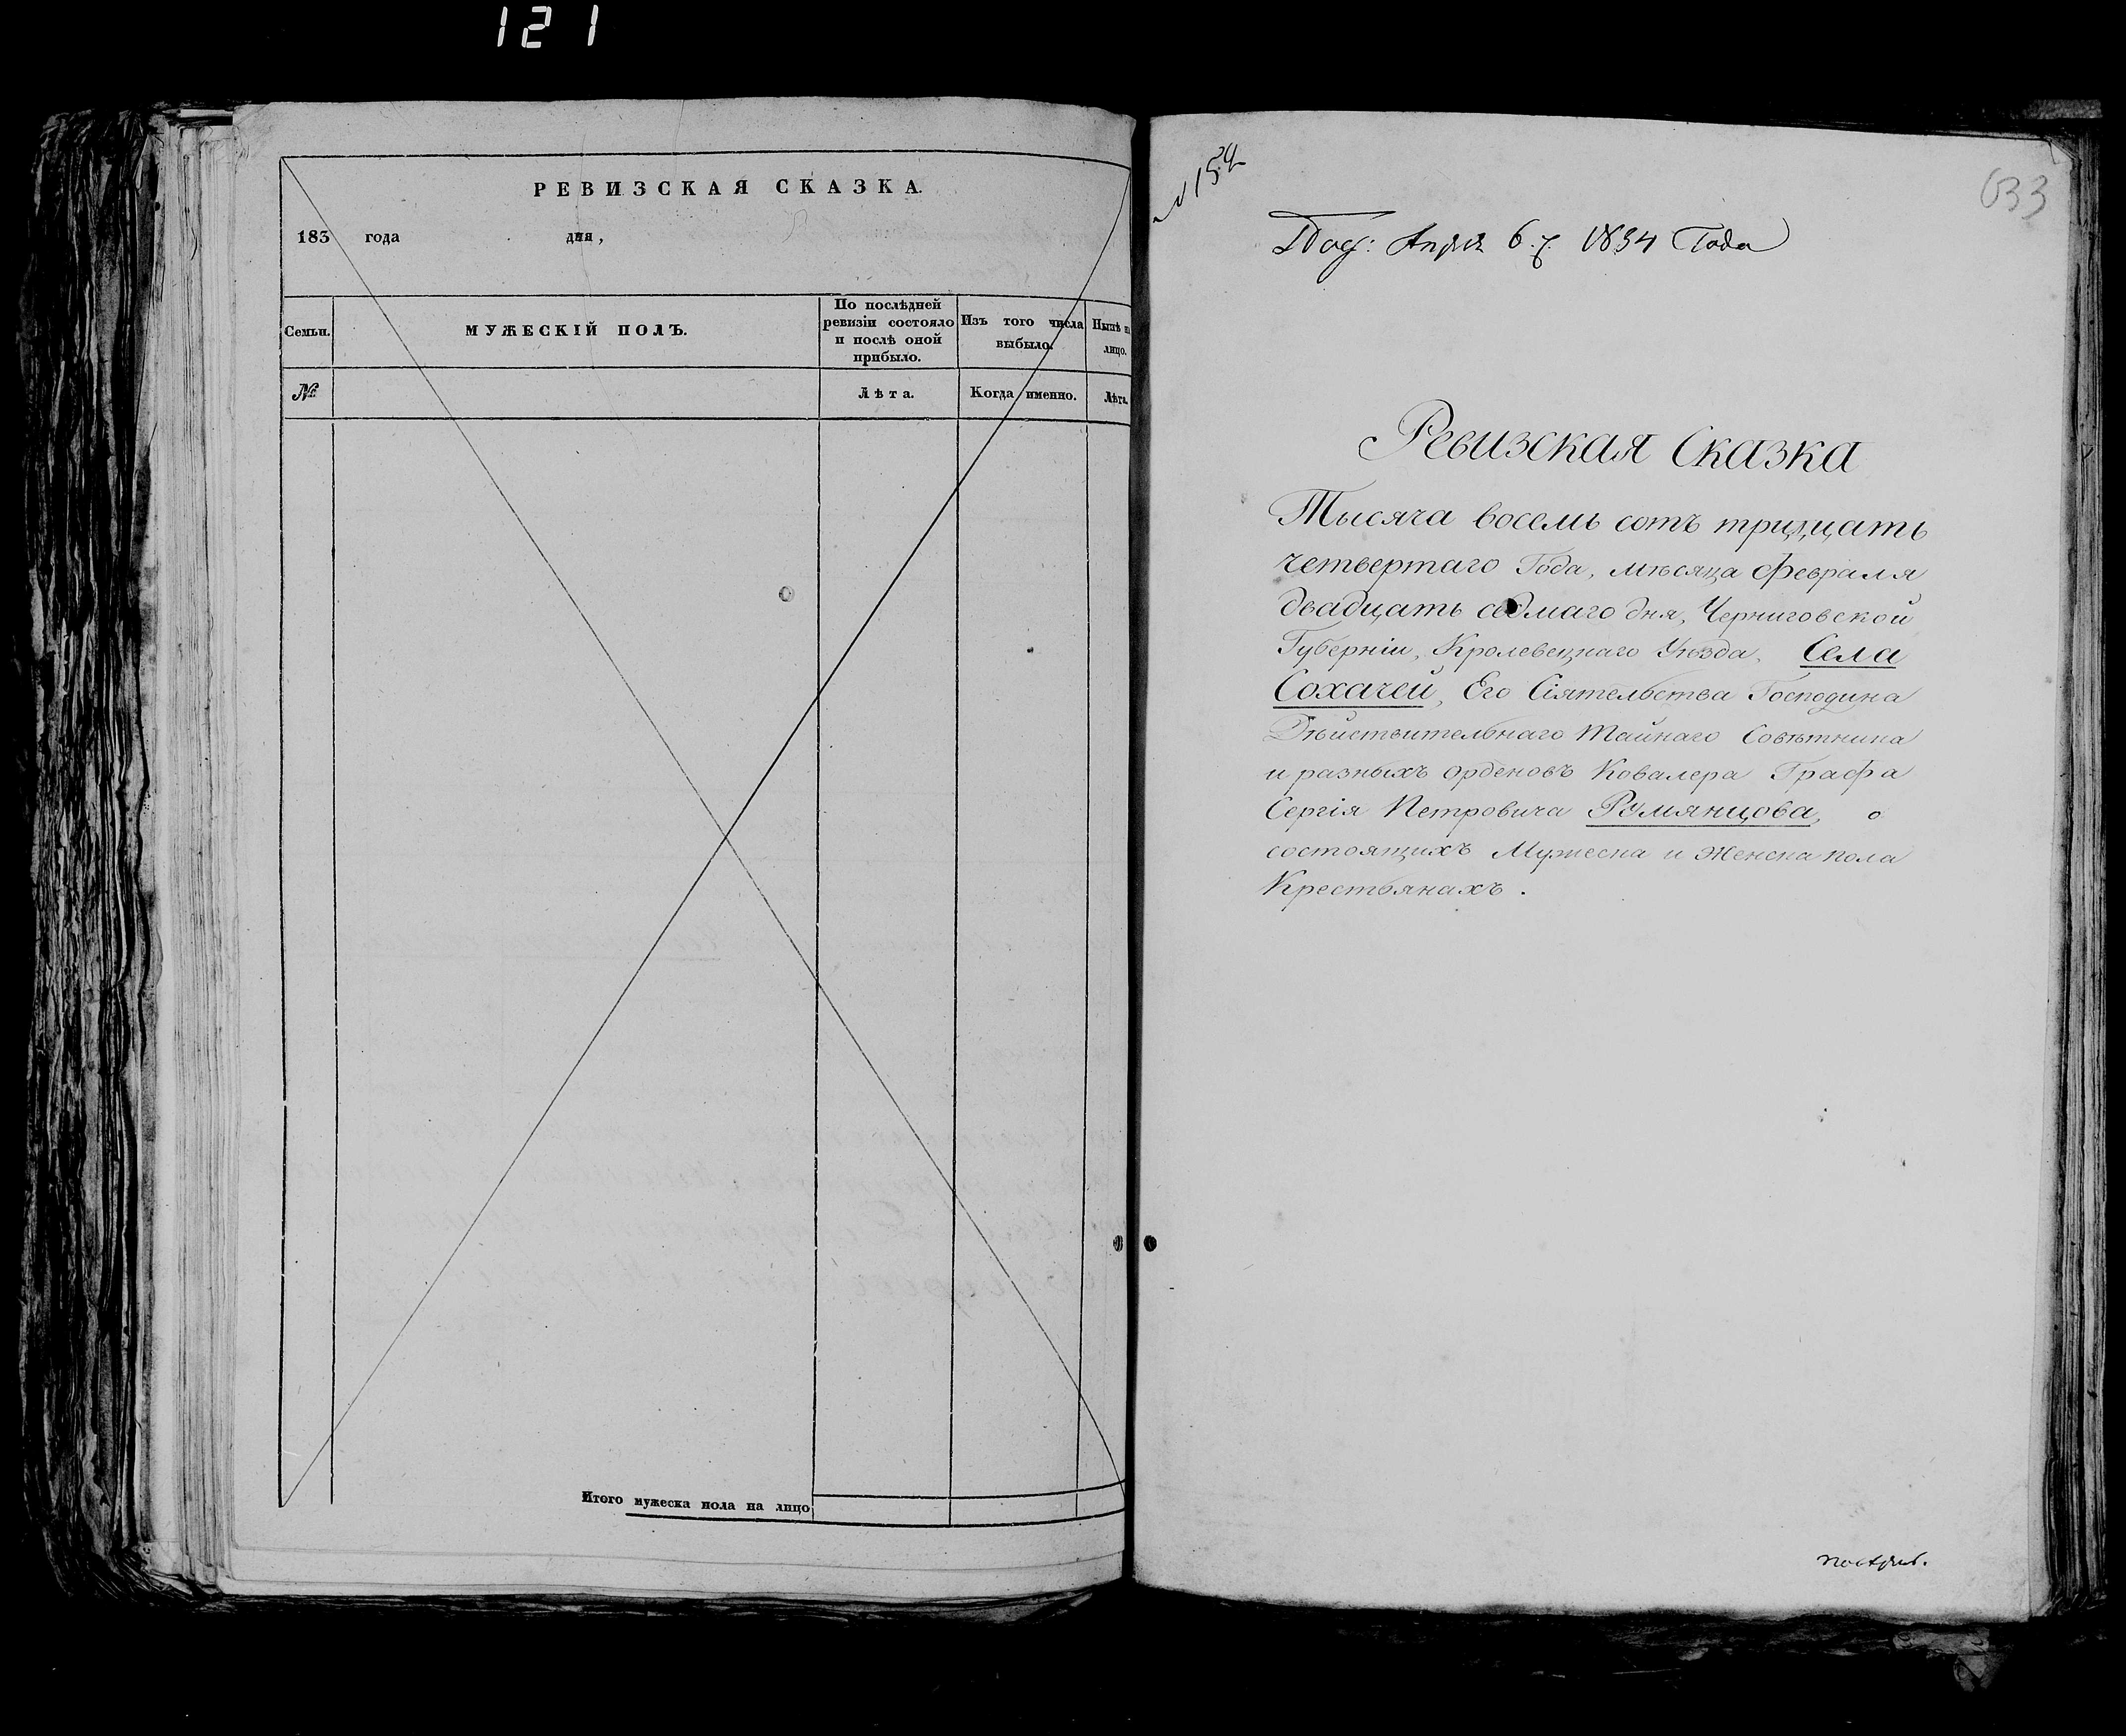 121
РЕВИЗСКАЯ СКАЗКА.
183 года дня,
Семьи.
МУЖЕСКІЙ ПОЛЪ.
По послѣдней
ревизіи состояло
и послѣ оной
прибыло.
Изъ того числа
выбыло.
Нынѣ на
лицо.
№
Лѣта.
Когда именно.
Лѣта.
Итого мужеска пола на лицо
633
6 1834 Года
Ревизская Сказка
Тысяча восемь сотъ тридцать
четвертаго Года, мѣсяца Февраля
двадцать седмаго дня, Черниговской
Губерніи, Кролевецкаго Уѣзда, Села
Сохачей, Его Сіятельства Господина
Дѣйствительнаго Тайнаго Совѣтника
и разныхъ орденовъ Ковалера Графа
Сергія Петровича Румянцова, о
состоящихъ Мужеска и Женска пола
Крестьянахъ.